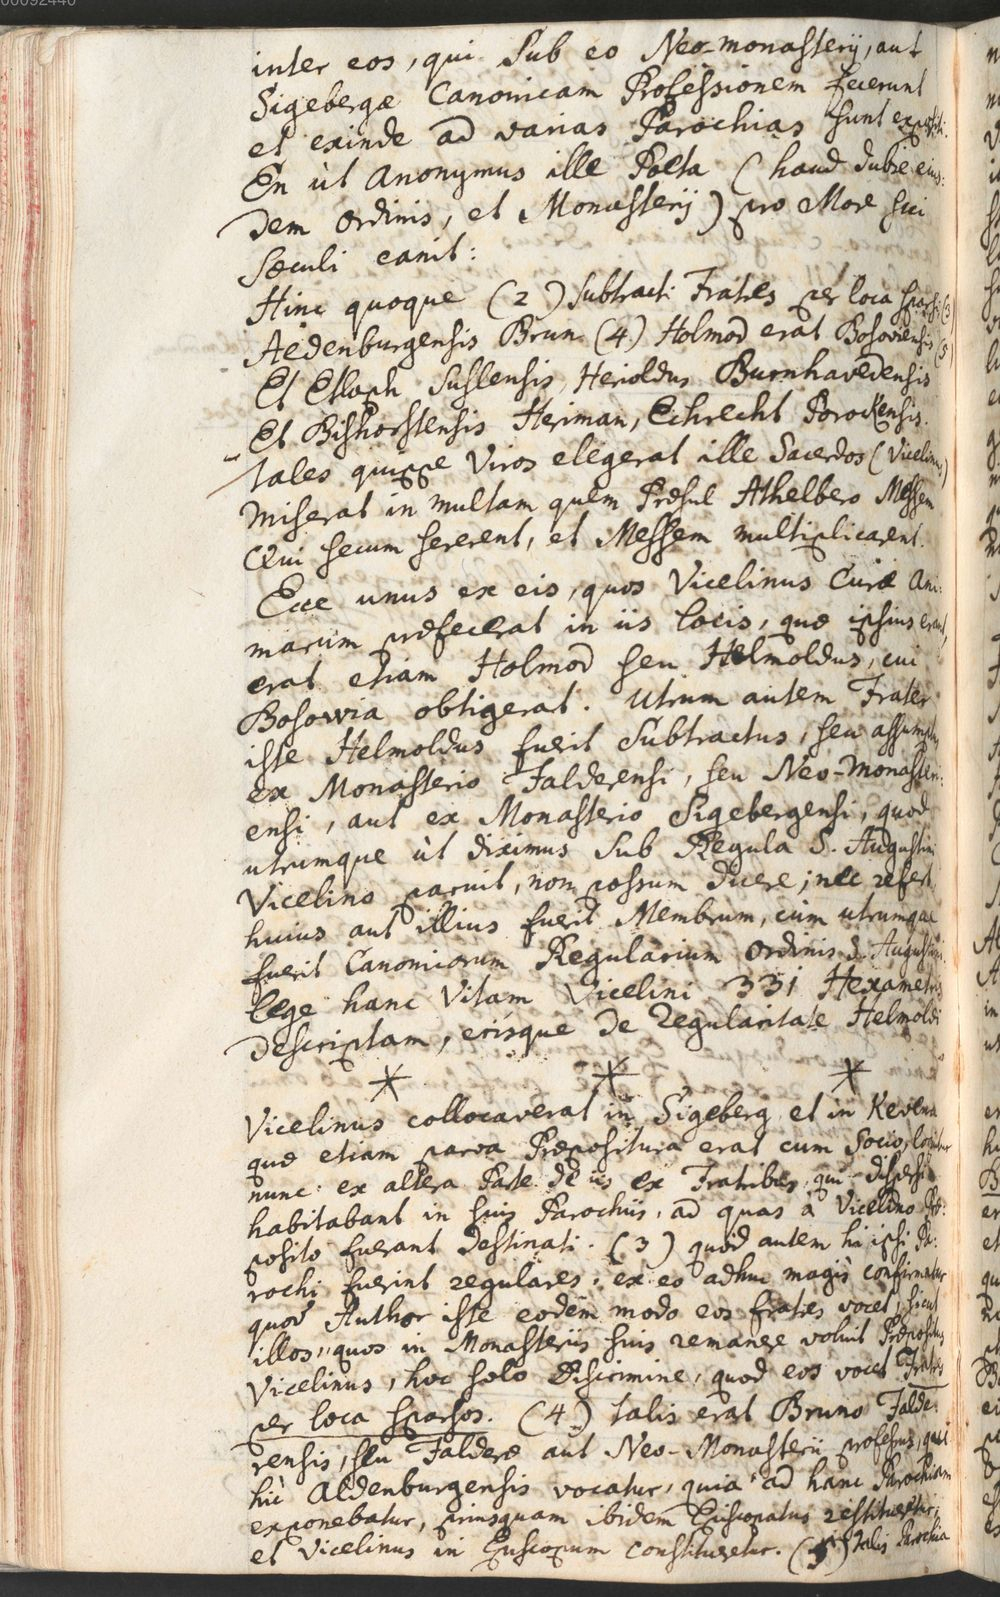 00092440
inter eos, qui sub eo Neo-monasterij, aut
Sigebergæ Canonicam Professionem fecerunt
et exinde ad varias Parochias sunt expositi.
En ùt Anonymus ille Poëta (haud dubie eius:
dem ordinis, et Monasterij) pro More sui
sæculi canit:
Hinc quoque (2) subtracti Fratres per loca sparsi (3)
Aedenburgensis Brun (4) Holmod erat Bosoviensis (5)
Et Esloph Suslensis, Herioldus Burnhavedensis
Et Bishorstensis Heriman, Echrecht Porockensis.
tales quippe Viros elegerat ille Sacerdos (Vicelinus)
miserat in multam quem Præsul Athelbero Messem
Qui secum sererent, et Messem multiplicarent.
Ecce unus ex eis, quos Vicelinus Curæ Ani:
marum præfecerat in iis locis, quæ ipsius erant,
erat etiam Holmod seu Helmoldus, cui
Bosovia obtigerat. Utrum autem Frater
iste Helmoldus fuerit subtractus, seu assumptus
ex Monasterio Falderensi, seu Neo-Monasteri:
ensi, aut ex Monasterio Sigebergensi, quod
utrumque ùt diximus sub Regula S. Augustini
Vicelino paruit, non possum dicere; nec refert
huius aut illius fuerit Membrum, cùm utrumque
fuerit Canonicorum Regularium Ordinis S. Augustini.
lege hanc Vitam Vicelini 331 Hexametris
descriptam, erisque de regularitate Helmoldi
* * *
Vicelinus collocaverat in Sigeberg et in
quæ etiam parva Præpositura erat cum Socio, loquitur
nunc ex altera Parte de iis ex Fratribus, qui dispersi
habitabant in suis Parochiis, ad quas à Vicelino Præ:
posito fuerant destinati. (3) quòd autem hi ipsi Pa:
rochi fuerint regulares, ex eo adhuc magìs confirmatur
quod Author iste eodem modo eos fratres vocet, sicut
illos, quos in Monasteriis suis remanere voluit Præpositus
Vicelinus, hoc solo Discrimine, quod eos vocet Fratres
per loca sparsos. (4) talis erat Bruno Falde:
rensis, seu Falderæ aut Neo-Monasterii professus, qui
hìc Aldenburgensis vocatur, quia ad hanc Parochiam
exponebatur, priusquam ibidem Episcopatus restitueretur,
et Vicelinus in Episcopum constitueretur. (5) talis Parochia